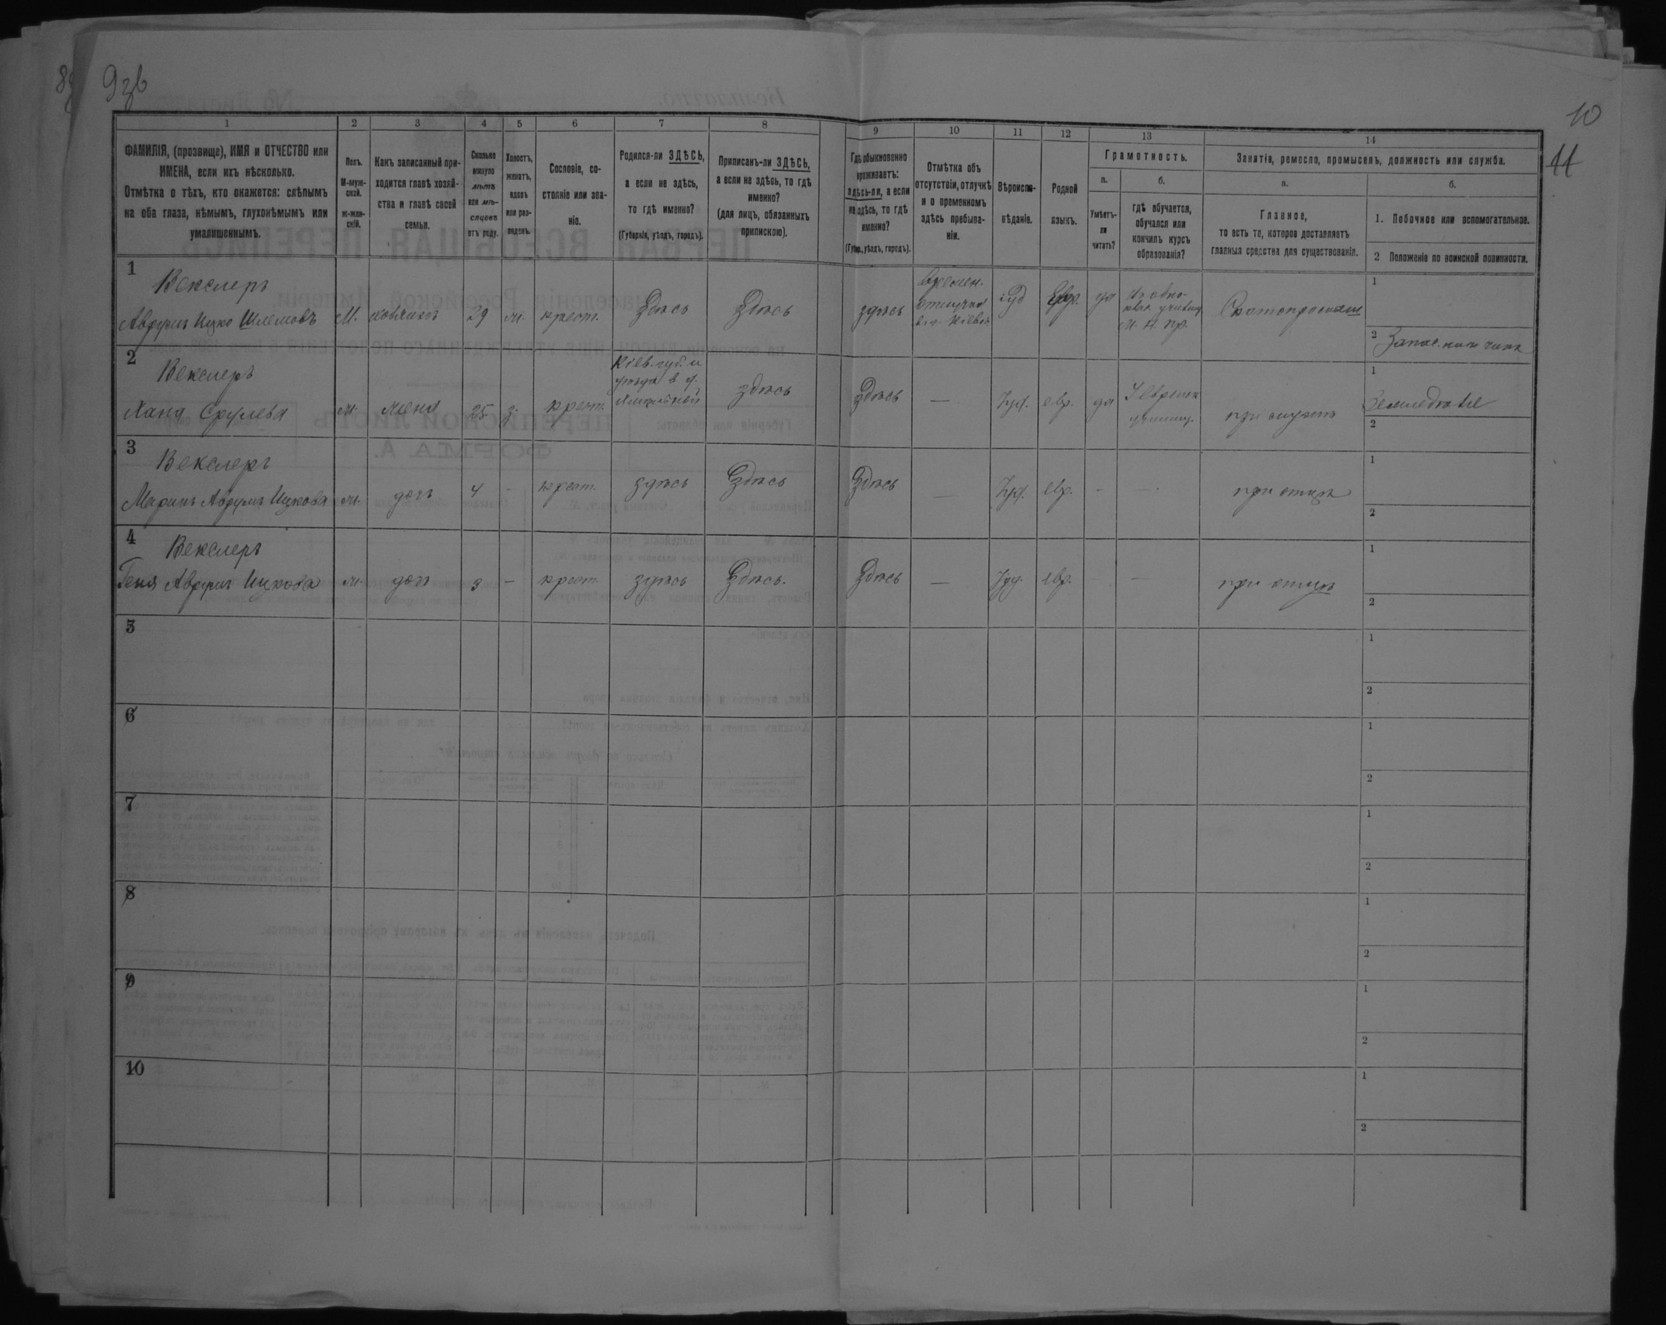 9
10
11
1
2
3
4
5
6
7
8
9
10
11
12
13
14
ФАМИЛІЯ, (прозвище), ИМЯ и ОТЧЕСТВО или
ИМЕНА, если ихъ нѣсколько.
Отмѣтка о тѣхъ, кто окажется: слѣпымъ
на оба глаза, нѣмымъ, глухонѣмымъ или
умалишеннымъ.
Полъ.
М-муж-
ской.
ж-жен-
скій.
Какъ записанный при-
ходится главѣ хозяй-
ства и главѣ своей
семьи.
Сколько
минуло
лѣтъ
или мѣ-
сяцевъ
отъ роду.
Холостъ,
женатъ,
вдовъ
или раз-
веденъ.
Сословіе, со-
стояніе или зва-
ніе.
Родился-ли ЗДѢСЬ,
а если не здѣсь,
то гдѣ именно?
(Губернія, уѣздъ, городъ).
Приписанъ-ли ЗДѢСЬ,
а если не здѣсь, то гдѣ
именно?
(для лицъ, обязанныхъ
припискою).
Гдѣ обыкновенно
проживаетъ:
здѣсь-ли, а если
не здѣсь, то гдѣ
именно?
(Губер., уѣздъ, городъ).
Отмѣтка объ
отсутствіи, отлучкѣ
и о временномъ
здѣсь пребыва-
ніи.
Вѣроиспо-
вѣданіе.
Родной
языкъ.
Грамотность.
а.
Умѣетъ-
ли
читать?
б.
гдѣ обучается,
обучался или
кончилъ курсъ
образованія?
Занятіе, ремесло, промыселъ, должность или служба.
а.
Главное,
то есть то, которое доставляетъ
главныя средства для существованія.
б.
1. Побочное или вспомогательное.
2 Положеніе по воинской повинности.
1
Векслеръ
Аврумъ Ицко Шлемовъ
М.
хозяинъ
29
ж.
крест.
Здѣсь
Здѣсь
здѣсь
времен.
отлучка
Іуд
Евр.
да
М. Н. Пр.
1
2
2
Векслеръ
Хана Срулева
ж.
жена
25
з.
крест.
Кіев. губ. и
Здѣсь
Здѣсь
—
Іуд.
евр.
да
при мужѣ
1
Земледѣліе
2
3
Векслеръ
Аврумъ Ицкова
ж.
дочь
4
-
крест.
здѣсь
Здѣсь
Здѣсь
—
Іуд.
евр.
-
-
при отцѣ
1
2
4
Векслеръ
Геня Аврумъ Ицкова
ж.
дочь
3
-
крест.
здѣсь
Здѣсь.
Здѣсь
—
Іуд.
евр.
-
-
при отцѣ
1
2
5
1
2
6
1
2
7
1
2
8
1
2
9
1
2
10
1
2